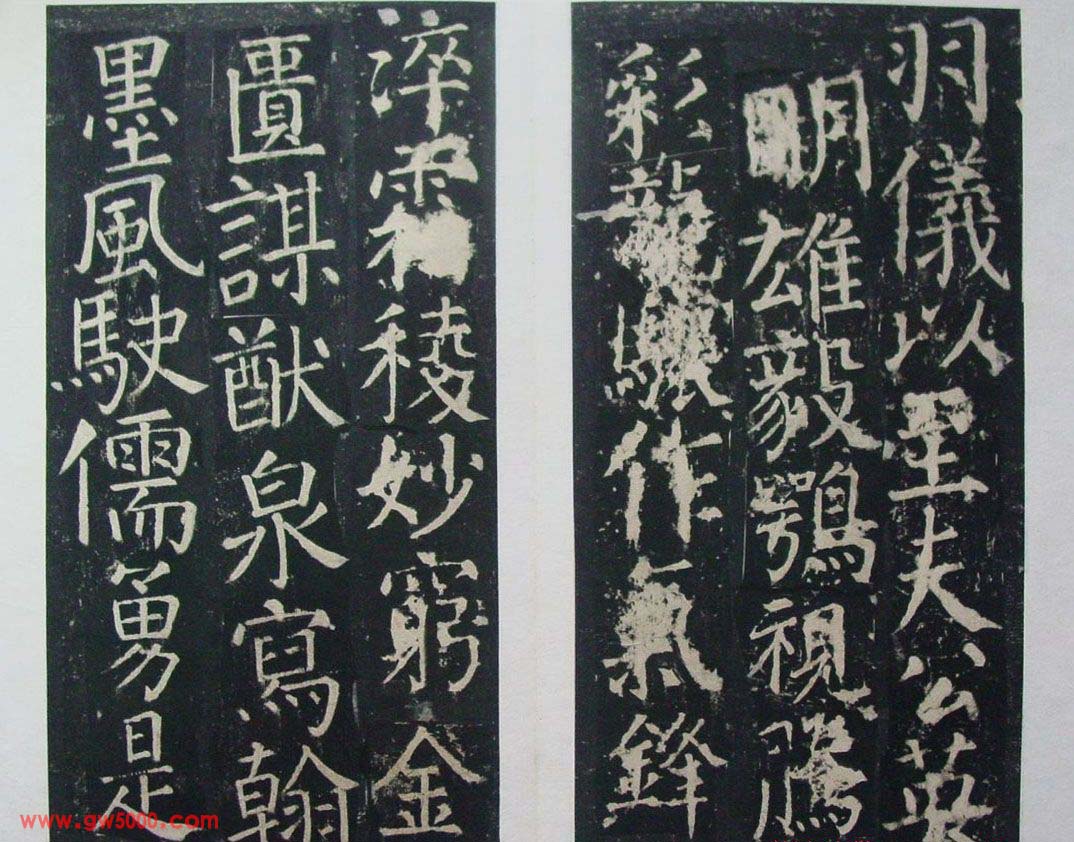 羽儀以至夫公英
明雄毅鶚視騰
彩龍驤作氣鋒
淬霜稜妙窮金
匱謀猷泉寫翰
墨風駛儒勇是
www.gw5000.com